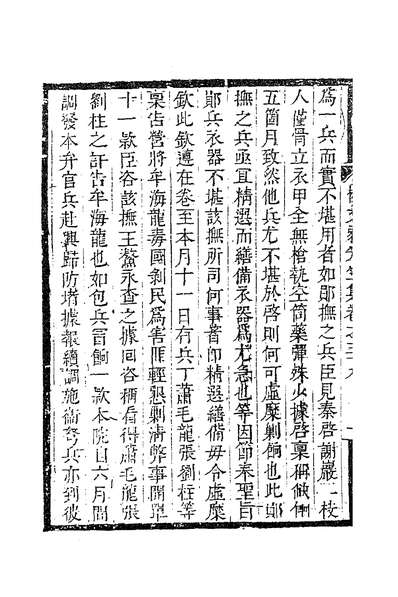 爲一兵而實不堪用者如鄖撫之兵臣見秦啓謝嚴一枝
人僅骨立衣甲全無槍執空筒藥彈殊少據啓稟稱做
五箇月致然他兵尤不堪於啓則何可虛糜剿餉也此鄖
撫之兵亟宜精選而繕備衣器爲尤急也等因節奉聖旨
鄖兵衣器不堪該撫所司何事着卽精選繕備毋令虛糜
欽此欽遵在卷至本月十一日有兵丁蕭毛龍張劉柱等
稟告營將牟海龍毒國剝民爲害匪輕懇剿清弊事開單
十一款臣咨該撫王鰲永查之據回咨稱看得蕭毛龍張
劉柱之訐告牟海龍也如包兵冒餉一款本院自六月間
調發本弁官兵赴興歸防堵據報續調施衞弩兵亦到彼